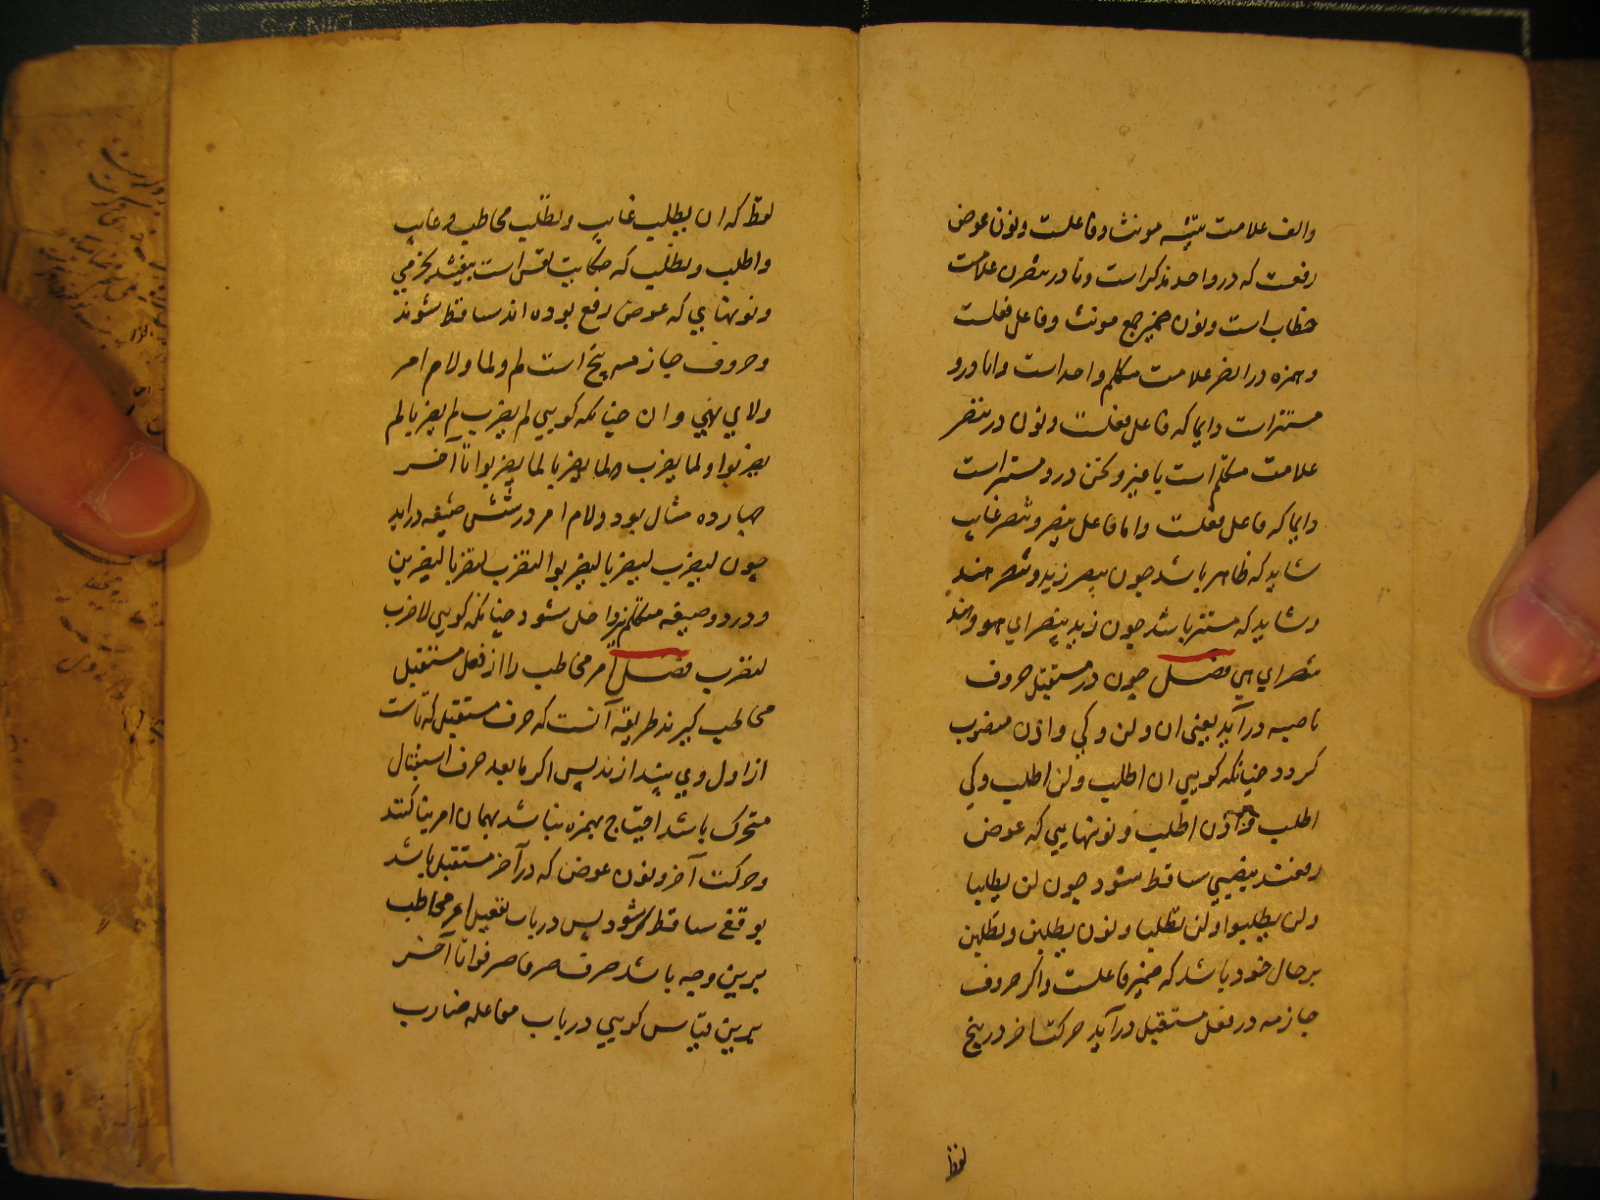 والف علامت تثنیه مونث و فاعلست و نون عوض
رفعست که در واحد مذکر است و تا در تنصرن علامت
خطاب است و نون ضمیر جمع مونث و فاعل فعلست
و همزه در انصر علامت متکلم واحد است و انا درو
مستتر است دایما که فاعل فعلست و نون در ننصر
علامت متکلم است با غیر و نحن درو مستتر است
دایما که فاعل فعلست و اما فاعل ینصر و تنصر غایب
شاید که ظاهر باشد چون ینصر زید و تنصر هند
و شاید که مستتر باشد چون زید ینصر ای هو و هند
تنصر ای هی فصل چون در مستقبل حروف
ناصبه در آید یعنی ان و لن و کی و اذن منصوب
کردد چنانکه کویی ان اطلب و لن اطلب و کی
اطلب و اذن اطلب و نونهایی که عوض
رفعند بنصبی ساقط شود چون لن یطلبا
و لن یطلبوا و لن تطلبا و نون یطلبن و تطلبن
بر حال خود باشد که ضمیر فاعلست و اکر حروف
جازمه در فعل مستقبل در آید حرکت اخر در پنج
لفظ
لفظ که ان یطلب غایب و تطلب مخاطب و غایب
و اطلب و نطلب که حکایت نفس است بیفتد بجزمی
و نونهایی که عوض رفع بوده اند ساقط شوند
و حروف جازمه پنج است لم و لما و لام امر
و لای نهی و ان چنانکه کویی لم یضرب لم یضربا لم
یضربوا و لما یضرب لما یضربا لما یضربوا تا آخر
چهارده مثال بود و لام امر در شش صیغه در اید
چون لیضرب لیضربا لیضربوا لتضرب لتضربا لیضربن
و در دو صیغه متکلم نیز داخل شود چنانکه کویی لاضرب
لنضرب فصل امر مخاطب را از فعل مستقبل
مخاطب کیرند طریقه آنست که حرف مستقبل که تاست
از اول وی بیندازند پس اکر ما بعد حرف استقبال
متحرک باشد احتیاج بهمزه نباشد بهمان امر بنا کنند
و حرکت آخر و نون عوض که در آخر مستقبل باشد
بوقفی ساقط شود پس در باب تفعیل امر مخاطب
برین وجه باشد صرف صرفا صرفوا تا آخر
برین قیاس کویی در باب مفاعله ضارب